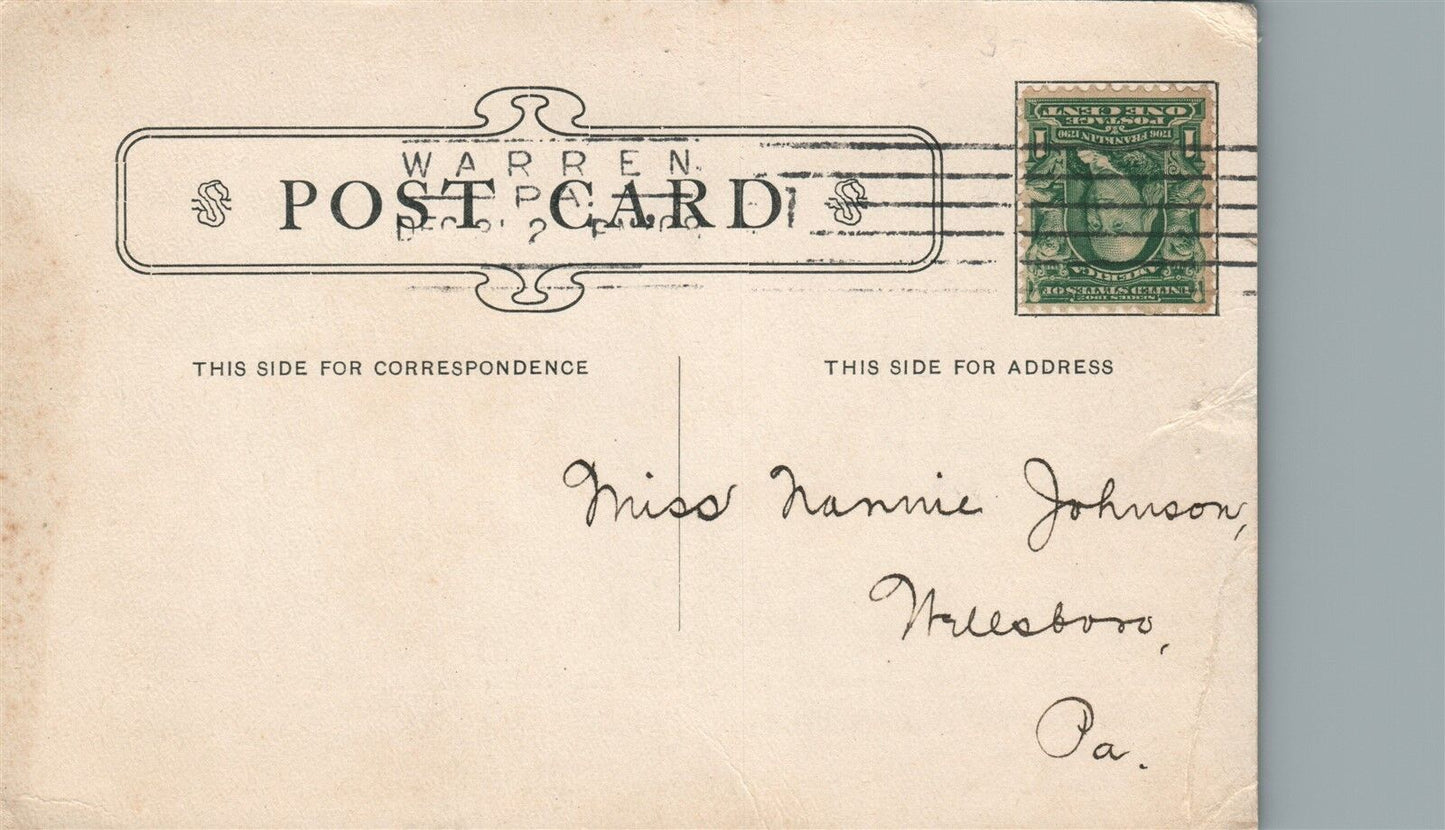 WARREN.
PA.
POST CARD
1
ONE CENT
POSTAGE
1706 FRANKLIN 1790
1 1
UNITED STATES OF
AMERICA
SERIES 1902
THIS SIDE FOR CORRESPONDENCE
THIS SIDE FOR ADDRESS
Miss Nannie Johnson,
Wellsboro,
Pa.